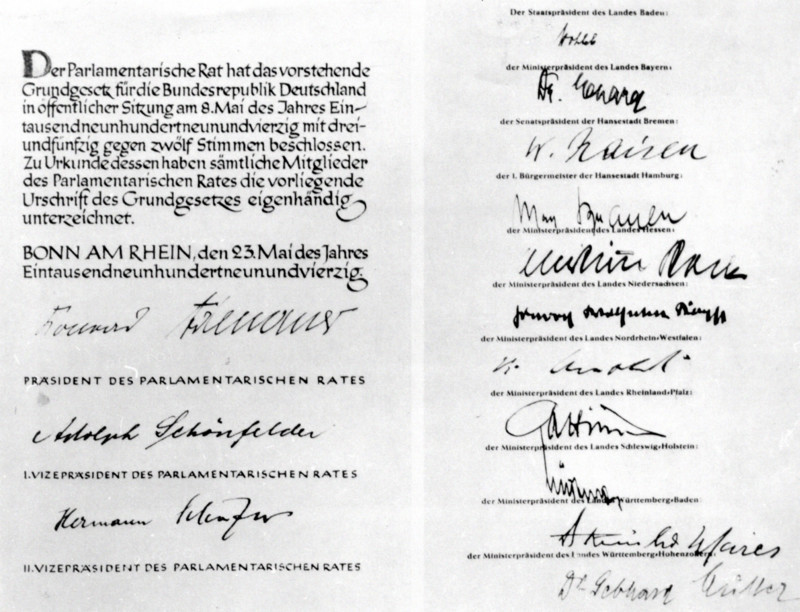 Der Parlamentarische Rat hat das vorstehende
Grundgesetz für die Bundesrepublik Deutschland
in öffentlicher Sitzung am 8. Mai des Jahres Ein-
tausendneunhundertneunundvierzig mit drei-
undfünfzig gegen zwölf Stimmen beschlossen.
Zu Urkunde dessen haben sämtliche Mitglieder
des Parlamentarischen Rates die vorliegende
Urschrift des Grundgesetzes eigenhändig
unterzeichnet.
BONN AM RHEIN, den 23. Mai des Jahres
Eintausendneunhundertneunundvierzig.
Konrad Adenauer
PRÄSIDENT DES PARLAMENTARISCHEN RATES
Adolph Schönfelder
I. VIZEPRÄSIDENT DES PARLAMENTARISCHEN RATES
Hermann Schäfer
II. VIZEPRÄSIDENT DES PARLAMENTARISCHEN RATES
Der Staatspräsident des Landes Baden:
Wohleb
der Ministerpräsident des Landes Bayern:
Dr. Ehard
der Senatspräsident der Hansestadt Bremen:
W. Kaisen
der I. Bürgermeister der Hansestadt Hamburg:
Max Brauer
der Ministerpräsident des Landes Hessen:
Christian Stock
der Ministerpräsident des Landes Niedersachsen:
Hinrich Wilhelm Kopf
der Ministerpräsident des Landes Nordrhein-Westfalen:
K. Arnold
der Ministerpräsident des Landes Rheinland-Pfalz:
Altmeier
der Ministerpräsident des Landes Schleswig-Holstein:
Lüdemann
der Ministerpräsident des Landes Württemberg-Baden:
Reinhold Maier
der Ministerpräsident des Landes Württemberg-Hohenzollern:
Dr. Gebhard Müller